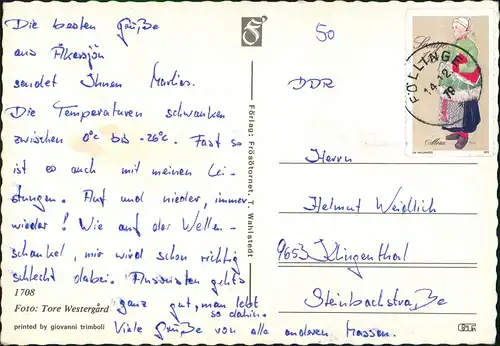 Die besten Grüße
aus Åkersjön
sendet Ihnen Marlies.
Die Temperaturen schwanken
zwischen 0°c bis -26°c. Fast so
ist es auch mit meinen Lei-
stungen. Auf und nieder, immer
wieder! Wie auf der Wellen-
schaukel, mir wird schon richtig
schlecht dabei. Ansonsten geht's
ganz gut, man lebt
so dahin.
Viele Grüße von alle anderen
1708
Foto: Tore Westergård
printed by giovanni trimboli
Förlag: Frösötornet, T. Wahlstedt
50
DDR
Herrn
Helmut Weidlich
9653 Klingenthal
Steinbachstraße
Sverige
FÖLLINGE
14 12
79